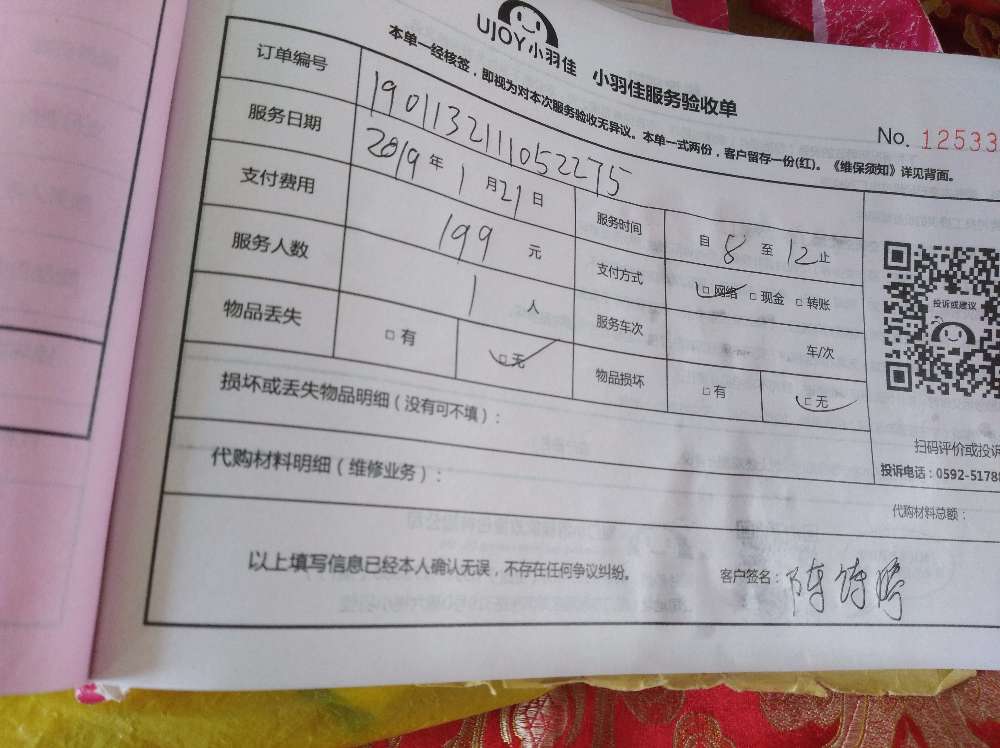 UJOY小羽佳 小羽佳服务验收单
本单一经核签，即视为对本次服务验收无异议。本单一式两份，客户留存一份(红)。《维保须知》详见背面。
No. 12533
订单编号 190113211105227 5
服务日期 2019 年 1 月 21 日 服务时间 自 8 至 12 止
支付费用 199 元 支付方式 □网络 □现金 □转账
服务人数 1 人 服务车次 车/次
物品丢失 □有 □无 物品损坏 □有 □无
投诉或建议
扫码评价或投诉
投诉电话：0592-5178
损坏或丢失物品明细（没有可不填）：
代购材料明细（维修业务）：
代购材料总额：
以上填写信息已经本人确认无误，不存在任何争议纠纷。 客户签名：陈